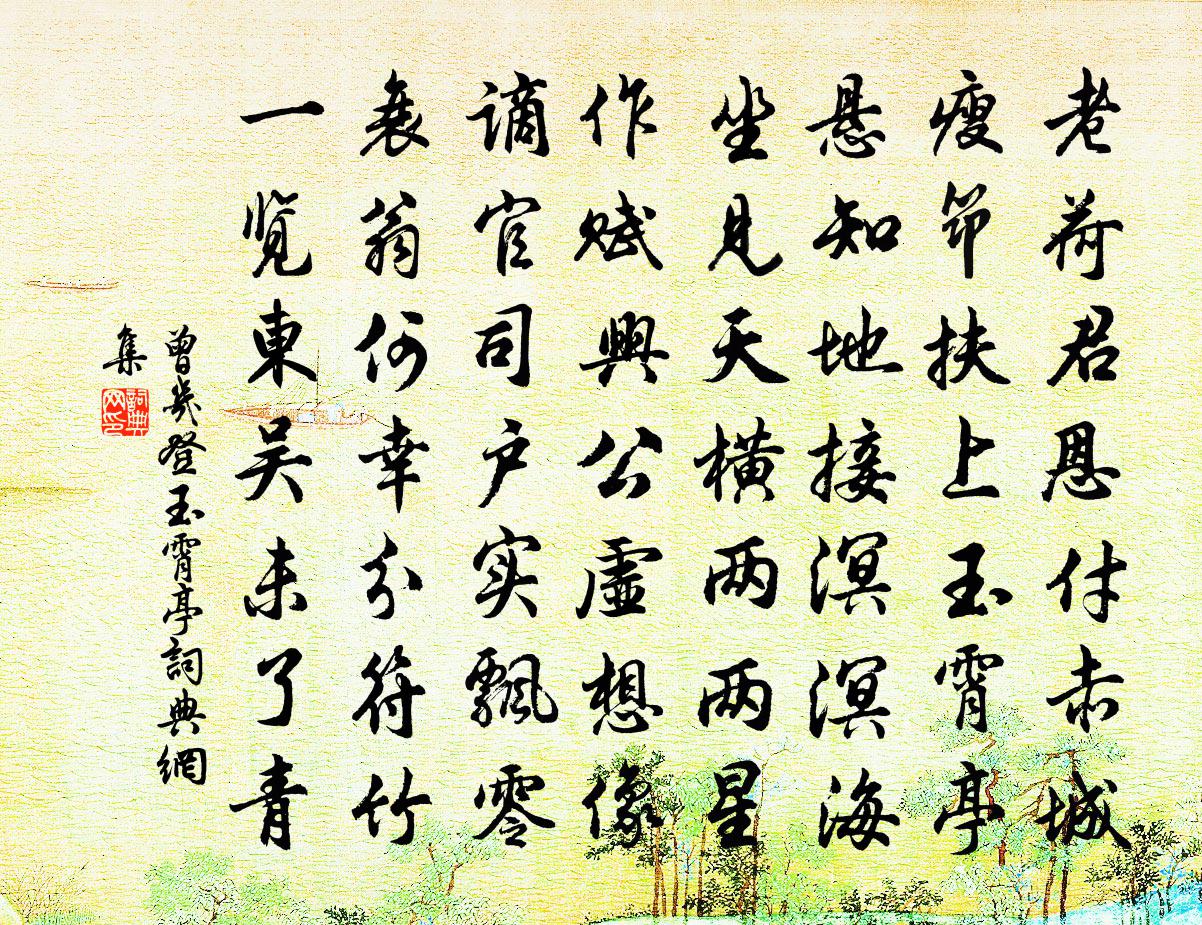 老荷君恩付赤城
瘦筇扶上玉霄亭
悬知地接溟溟海
坐见天横两两星
作赋興公虚想像
谪官司户实飘零
衰翁何幸分符竹
一览東吴未了青
曾幾登玉霄亭詞典網
集
詞典网印